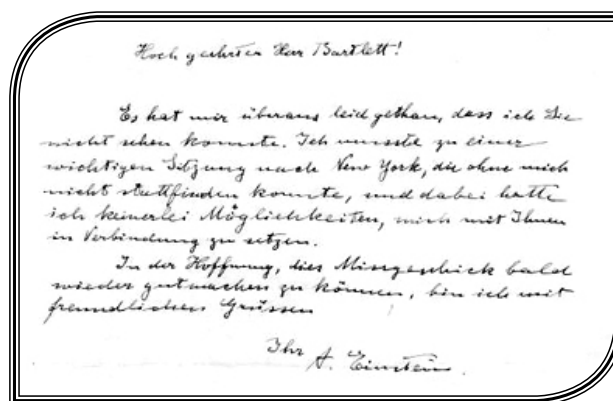 Hoch geehrter Herr Bartlett!
Es hat mir überaus leid gethan, dass ich Sie
nicht sehen konnte. Ich musste zu einer
wichtigen Sitzung nach New York, die ohne mich
nicht stattfinden konnte, und dabei hatte
ich keinerlei Möglichkeiten, mich mit Ihnen
in Verbindung zu setzen.
In der Hoffnung, dies Missgeschick bald
wieder gutmachen zu können, bin ich mit
freundlichen Grüssen
Ihr
A. Einstein.